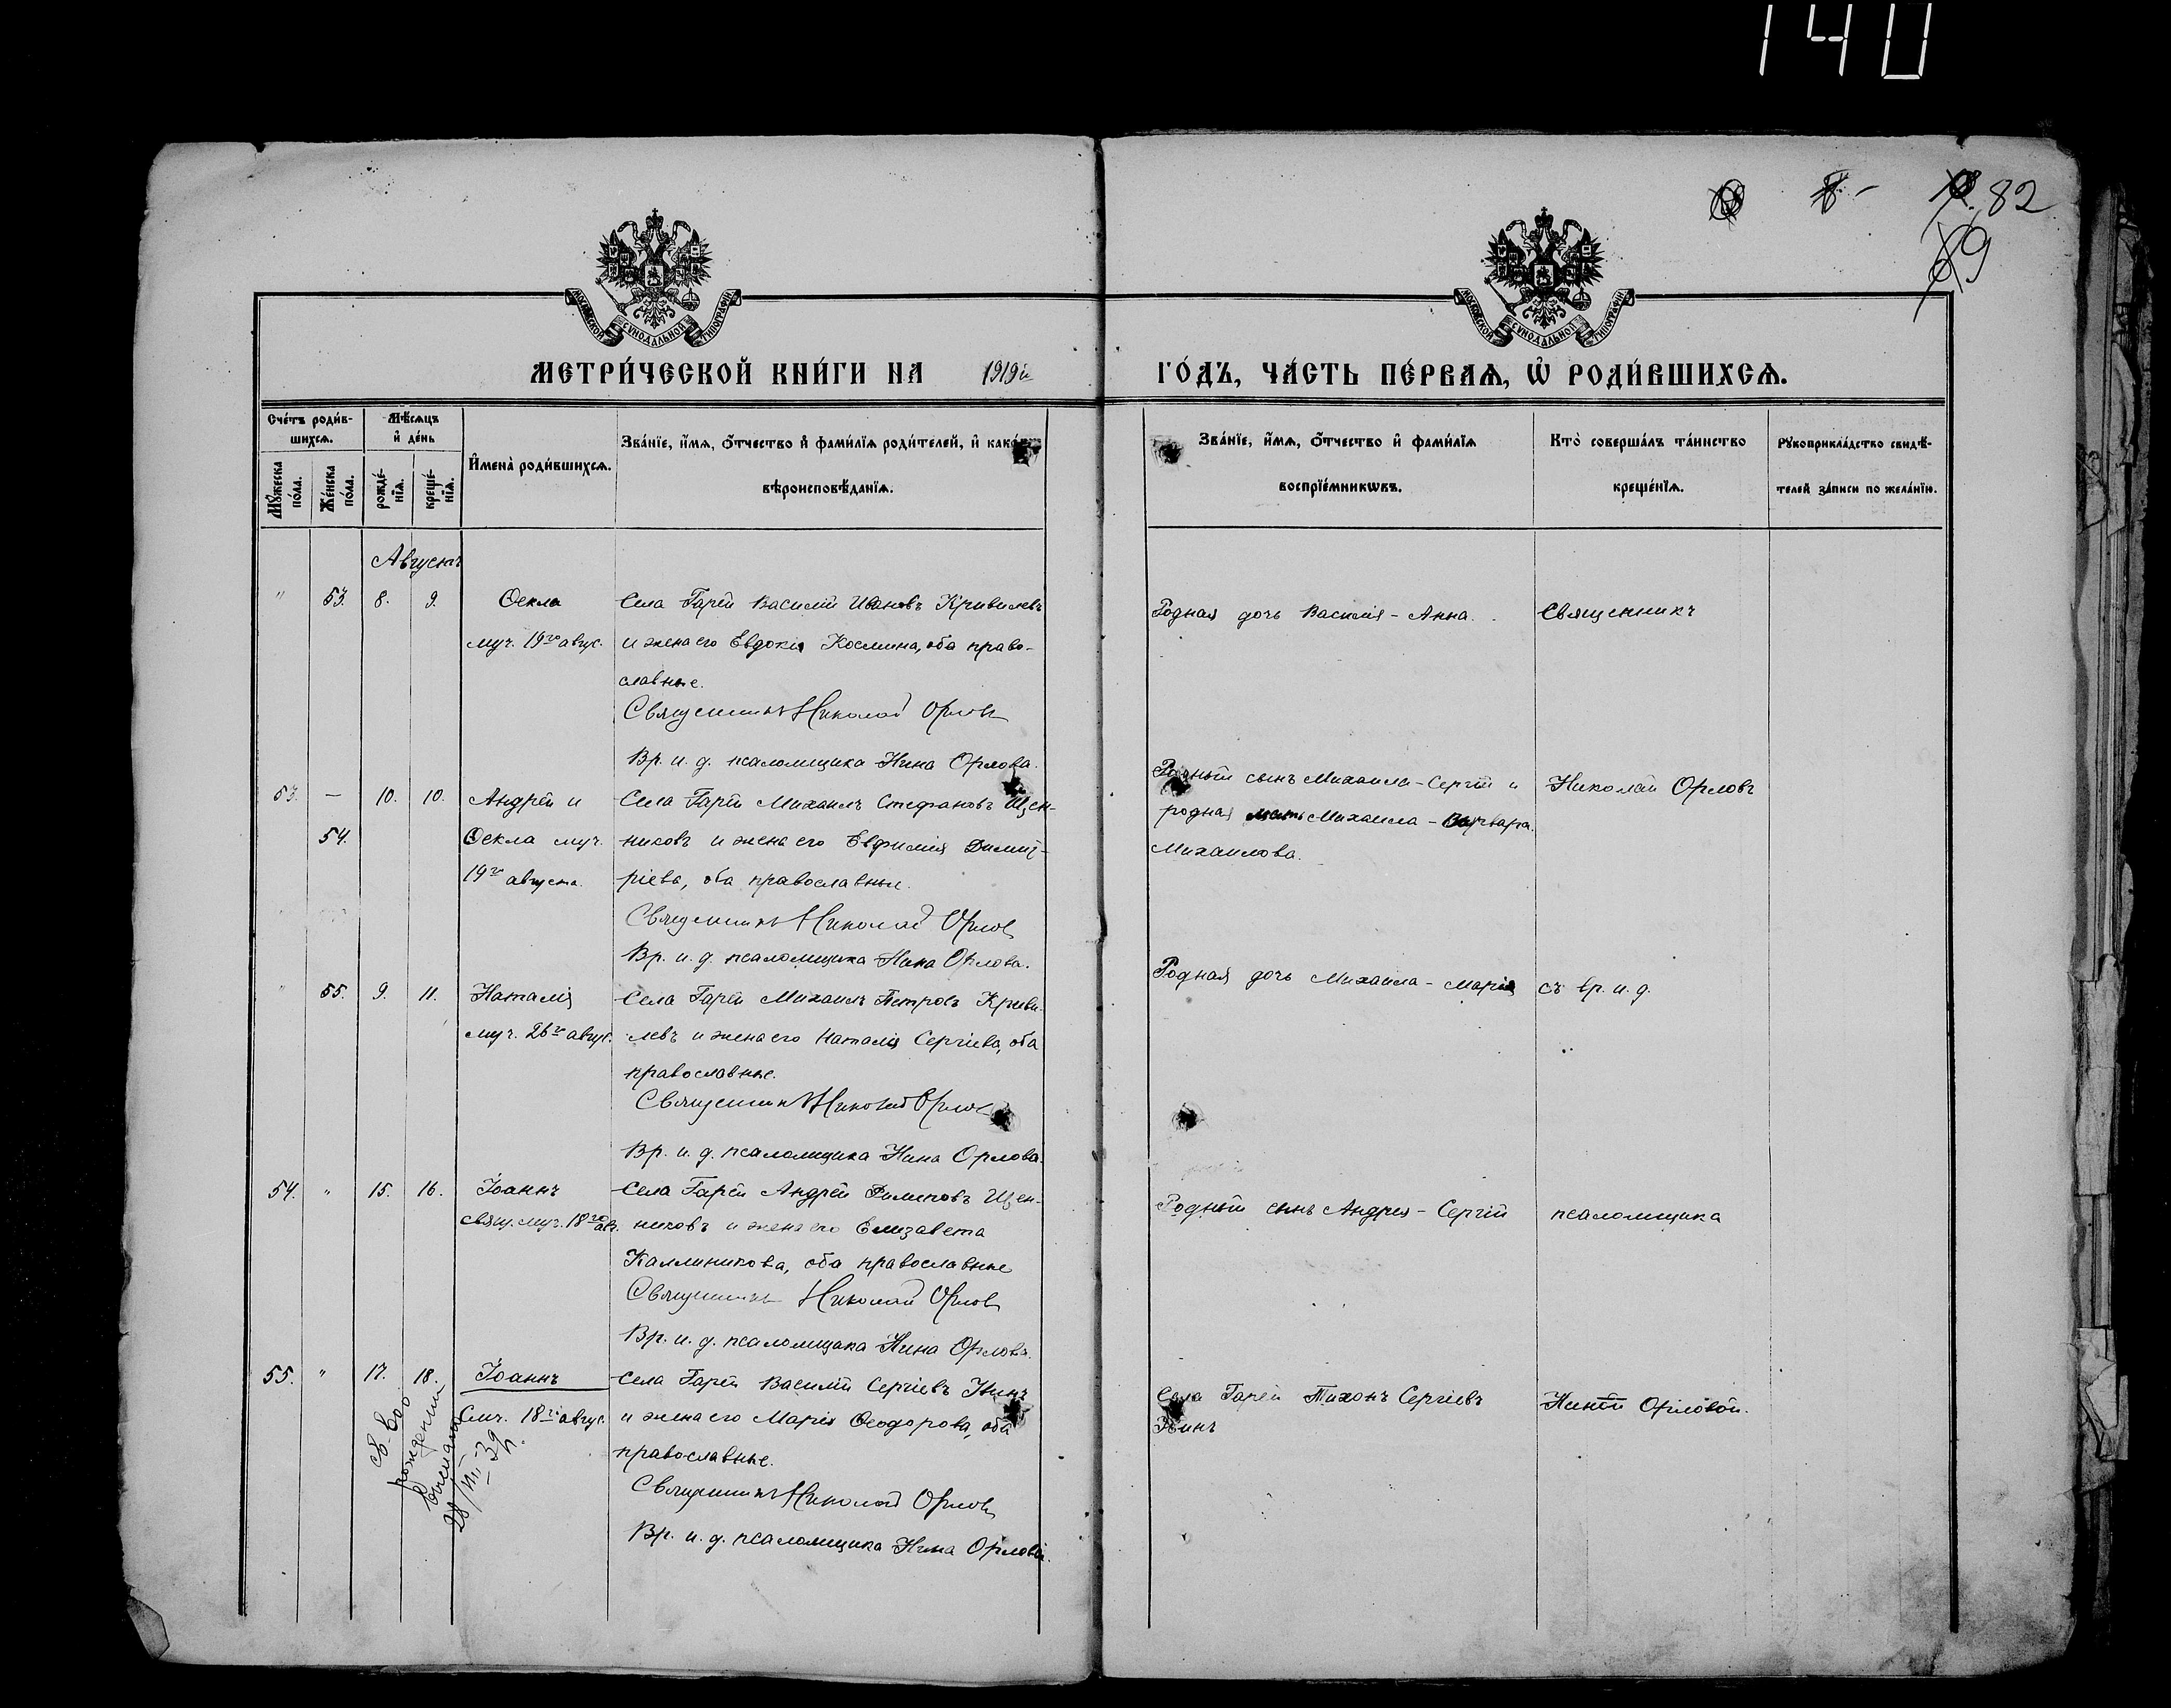 140
82
69
МОСКОВСКОЙ СѴНОДАЛЬНОЙ ТИПОГРАФІИ
МОСКОВСКОЙ СѴНОДАЛЬНОЙ ТИПОГРАФІИ
МЕТРИ́ЧЕСКОЙ КНИ́ГИ НА 1919й ГО́ДЪ, ЧА́СТЬ ПЕ́РВАѦ, Ѽ РОДИ́ВШИХСѦ.
Сче́тъ роди́в-
шихсѧ.
Мꙋ́жеска по́ла.
Же́нска по́ла.
Мѣ́сѧцъ
и҆ де́нь
рожде́-
нїѧ.
креще́-
нїѧ.
И҆мена̀ роди́вшихсѧ.
Зва́нїе, и҆́мѧ, ѻ҆́тчество и҆ фами́лїѧ роди́телей, и҆ како́гѡ
вѣроисповѣ́данїѧ.
Зва́нїе, и҆́мѧ, ѻ҆́тчество и҆ фами́лїѧ
воспрїе́мникѡвъ.
Кто̀ соверша́лъ та́инство
креще́нїѧ.
Рꙋкоприкла́дство свидѣ́-
телей за́писи по жела́нїю.
Августъ
" 53. 8. 9. Ѳекла
муч. 19го авгус.
Села Гарей Василій Ивановъ Кривилевъ
и жена его Евдокія Космина, оба право-
славные.
Священникъ Николай Орловъ
Вр. и. д. псаломщика Нина Орлова.
Родная дочь Василія - Анна.
Священникъ
53. — 10. 10. Андрей и
54. Ѳекла муч.
19го августа.
Села Гарей Михаилъ Стефановъ Щен-
никовъ и жена его Евфимія Димит-
ріева, оба православные.
Священникъ Николай Орловъ
Вр. и. д. псаломщика Нина Орлова.
Родный сынъ Михаила - Сергій и
родная мать Михаила - Варвара
Михаилова.
Николай Орловъ
" 55. 9. 11. Наталія
муч. 26го авгус.
Села Гарей Михаилъ Петровъ Криви-
левъ и жена его Наталія Сергіева, оба
православные.
Священникъ Николай Орловъ
Вр. и. д. псаломщика Нина Орлова.
Родная дочь Михаила - Марія
съ вр. и. д.
54. " 15. 16. Іоаннъ
свящ. муч. 18го ав.
Села Гарей Андрей Филиповъ Щен-
никовъ и жена его Елизавета
Каллиникова, оба православные
Священникъ Николай Орловъ
Вр. и. д. псаломщика Нина Орлова.
Родный сынъ Андрея - Сергій
псаломщика
55. " 17. 18. Іоаннъ
Смч. 18го авгус.
Села Гарей Василій Сергіевъ
и жена его Марія Ѳеодорова, оба
православные.
Священникъ Николай Орловъ
Вр. и. д. псаломщика Нина Орлова.
Села Гарей Тихонъ Сергіевъ
Ниной Орловой.
св-во
рождении
28/VIII-39 г.